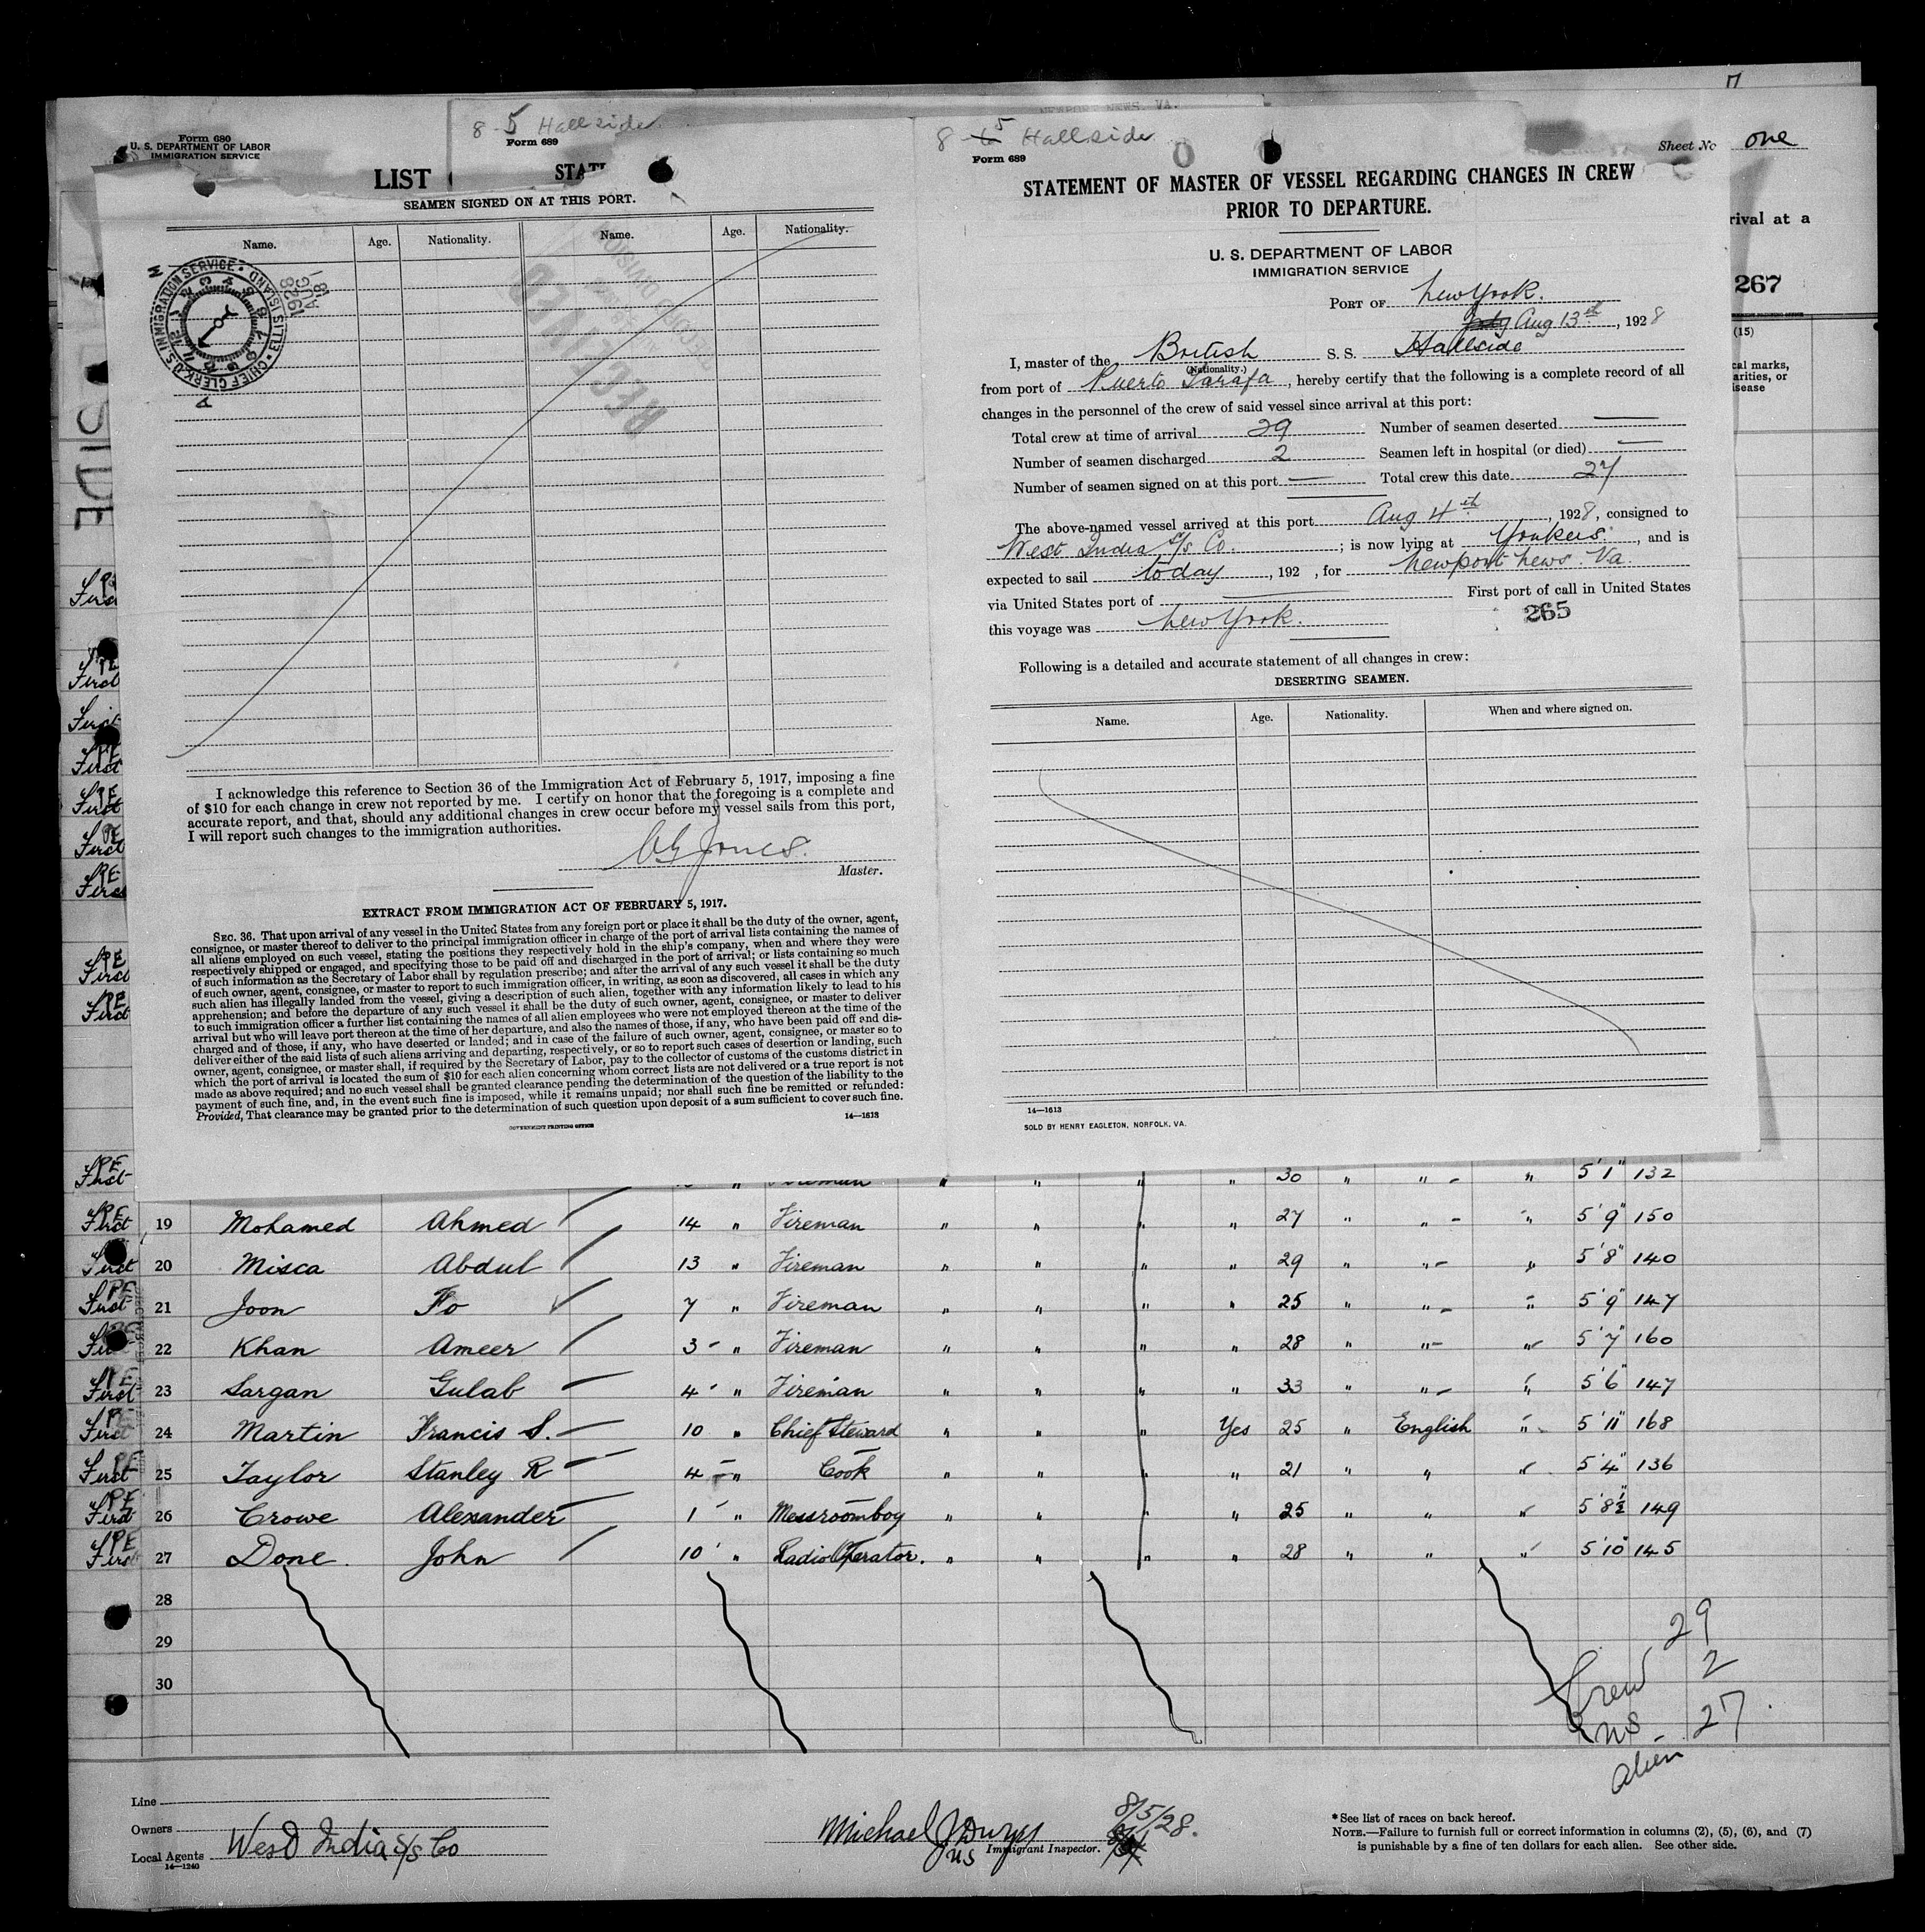 Form 680
U. S. DEPARTMENT OF LABOR
IMMIGRATION SERVICE
LIST
8-5 Hallside
Form 689
STAT
SEAMEN SIGNED ON AT THIS PORT.
Name. Age. Nationality. Name. Age. Nationality.
U.S. IMMIGRATION SERVICE • ELLIS ISLAND • CHIEF CLERK
AUG
1928
RECEIVED
I acknowledge this reference to Section 36 of the Immigration Act of February 5, 1917, imposing a fine
of $10 for each change in crew not reported by me. I certify on honor that the foregoing is a complete and
accurate report, and that, should any additional changes in crew occur before my vessel sails from this port,
I will report such changes to the immigration authorities.
Jones.
Master.
EXTRACT FROM IMMIGRATION ACT OF FEBRUARY 5, 1917.
SEC. 36. That upon arrival of any vessel in the United States from any foreign port or place it shall be the duty of the owner, agent,
consignee, or master thereof to deliver to the principal immigration officer in charge of the port of arrival lists containing the names of
all aliens employed on such vessel, stating the positions they respectively hold in the ship's company, when and where they were
respectively shipped or engaged, and specifying those to be paid off and discharged in the port of arrival; or lists containing so much
of such information as the Secretary of Labor shall by regulation prescribe; and after the arrival of any such vessel it shall be the duty
of such owner, agent, consignee, or master to report to such immigration officer, in writing, as soon as discovered, all cases in which any
such alien has illegally landed from the vessel, giving a description of such alien, together with any information likely to lead to his
apprehension; and before the departure of any such vessel it shall be the duty of such owner, agent, consignee, or master to deliver
to such immigration officer a further list containing the names of all alien employees who were not employed thereon at the time of the
arrival but who will leave port thereon at the time of her departure, and also the names of those, if any, who have been paid off and dis-
charged and of those, if any, who have deserted or landed; and in case of the failure of such owner, agent, consignee, or master so to
deliver either of the said lists of such aliens arriving and departing, respectively, or so to report such cases of desertion or landing, such
owner, agent, consignee, or master shall, if required by the Secretary of Labor, pay to the collector of customs of the customs district in
which the port of arrival is located the sum of $10 for each alien concerning whom correct lists are not delivered or a true report is not
made as above required; and no such vessel shall be granted clearance pending the determination of the question of the liability to the
payment of such fine, and, in the event such fine is imposed, while it remains unpaid; nor shall such fine be remitted or refunded:
Provided, That clearance may be granted prior to the determination of such question upon deposit of a sum sufficient to cover such fine.
14—1613
GOVERNMENT PRINTING OFFICE
NEWPORT NEWS, VA.
8 5 Hallside
Form 689
Sheet No one
STATEMENT OF MASTER OF VESSEL REGARDING CHANGES IN CREW
PRIOR TO DEPARTURE.
U. S. DEPARTMENT OF LABOR
IMMIGRATION SERVICE
PORT OF New York.
Aug 13th, 1928
I, master of the British S. S. Hallside
(Nationality.)
from port of Puerto Tarafa, hereby certify that the following is a complete record of all
changes in the personnel of the crew of said vessel since arrival at this port:
Total crew at time of arrival 29 Number of seamen deserted —
Number of seamen discharged 2 Seamen left in hospital (or died) —
Number of seamen signed on at this port — Total crew this date 27
The above-named vessel arrived at this port Aug 4th, 1928, consigned to
West India S/s Co. ; is now lying at Yonkers, and is
expected to sail today, 192 , for Newport News. Va.
via United States port of — First port of call in United States
this voyage was New York.
265
Following is a detailed and accurate statement of all changes in crew:
DESERTING SEAMEN.
Name. Age. Nationality. When and where signed on.
14—1613
SOLD BY HENRY EAGLETON, NORFOLK, VA.
rival at a
267
(15)
cal marks,
arities, or
isease
SIDE
PE First " Fireman " " " " 30 " " - " 5'1" 132
PE First 19 Mohamed Ahmed 14 " Fireman " " " " 27 " " - " 5'9" 150
First 20 Misca Abdul 13 " Fireman " " " " 29 " " - " 5'8" 140
PE First 21 Joon Fo 7 " Fireman " " " " 25 " " - " 5'9" 147
22 Khan Ameer 3 - " Fireman " " " " 28 " " - " 5'7" 160
PE First 23 Sargan Gulab 4 " Fireman " " " " 33 " " - " 5'6" 147
PE First 24 Martin Francis S. 10 " Chief Steward " " " Yes 25 " English " 5'11" 168
PE First 25 Taylor Stanley R 4 " Cook " " " " 21 " " " 5'4" 136
PE First 26 Crowe Alexander 1 " Messroomboy " " " " 25 " " " 5'8½" 149
PE First 27 Done. John 10 " Radio Operator. " " " " 28 " " " 5'10" 145
28
29
30
29
Crew 2
US 27
alien
Line
Owners
Local Agents West India S/S Co
14—1240
Michael J Dwyer 8/5/28.
US Immigrant Inspector.
* See list of races on back hereof.
NOTE.—Failure to furnish full or correct information in columns (2), (5), (6), and (7)
is punishable by a fine of ten dollars for each alien. See other side.